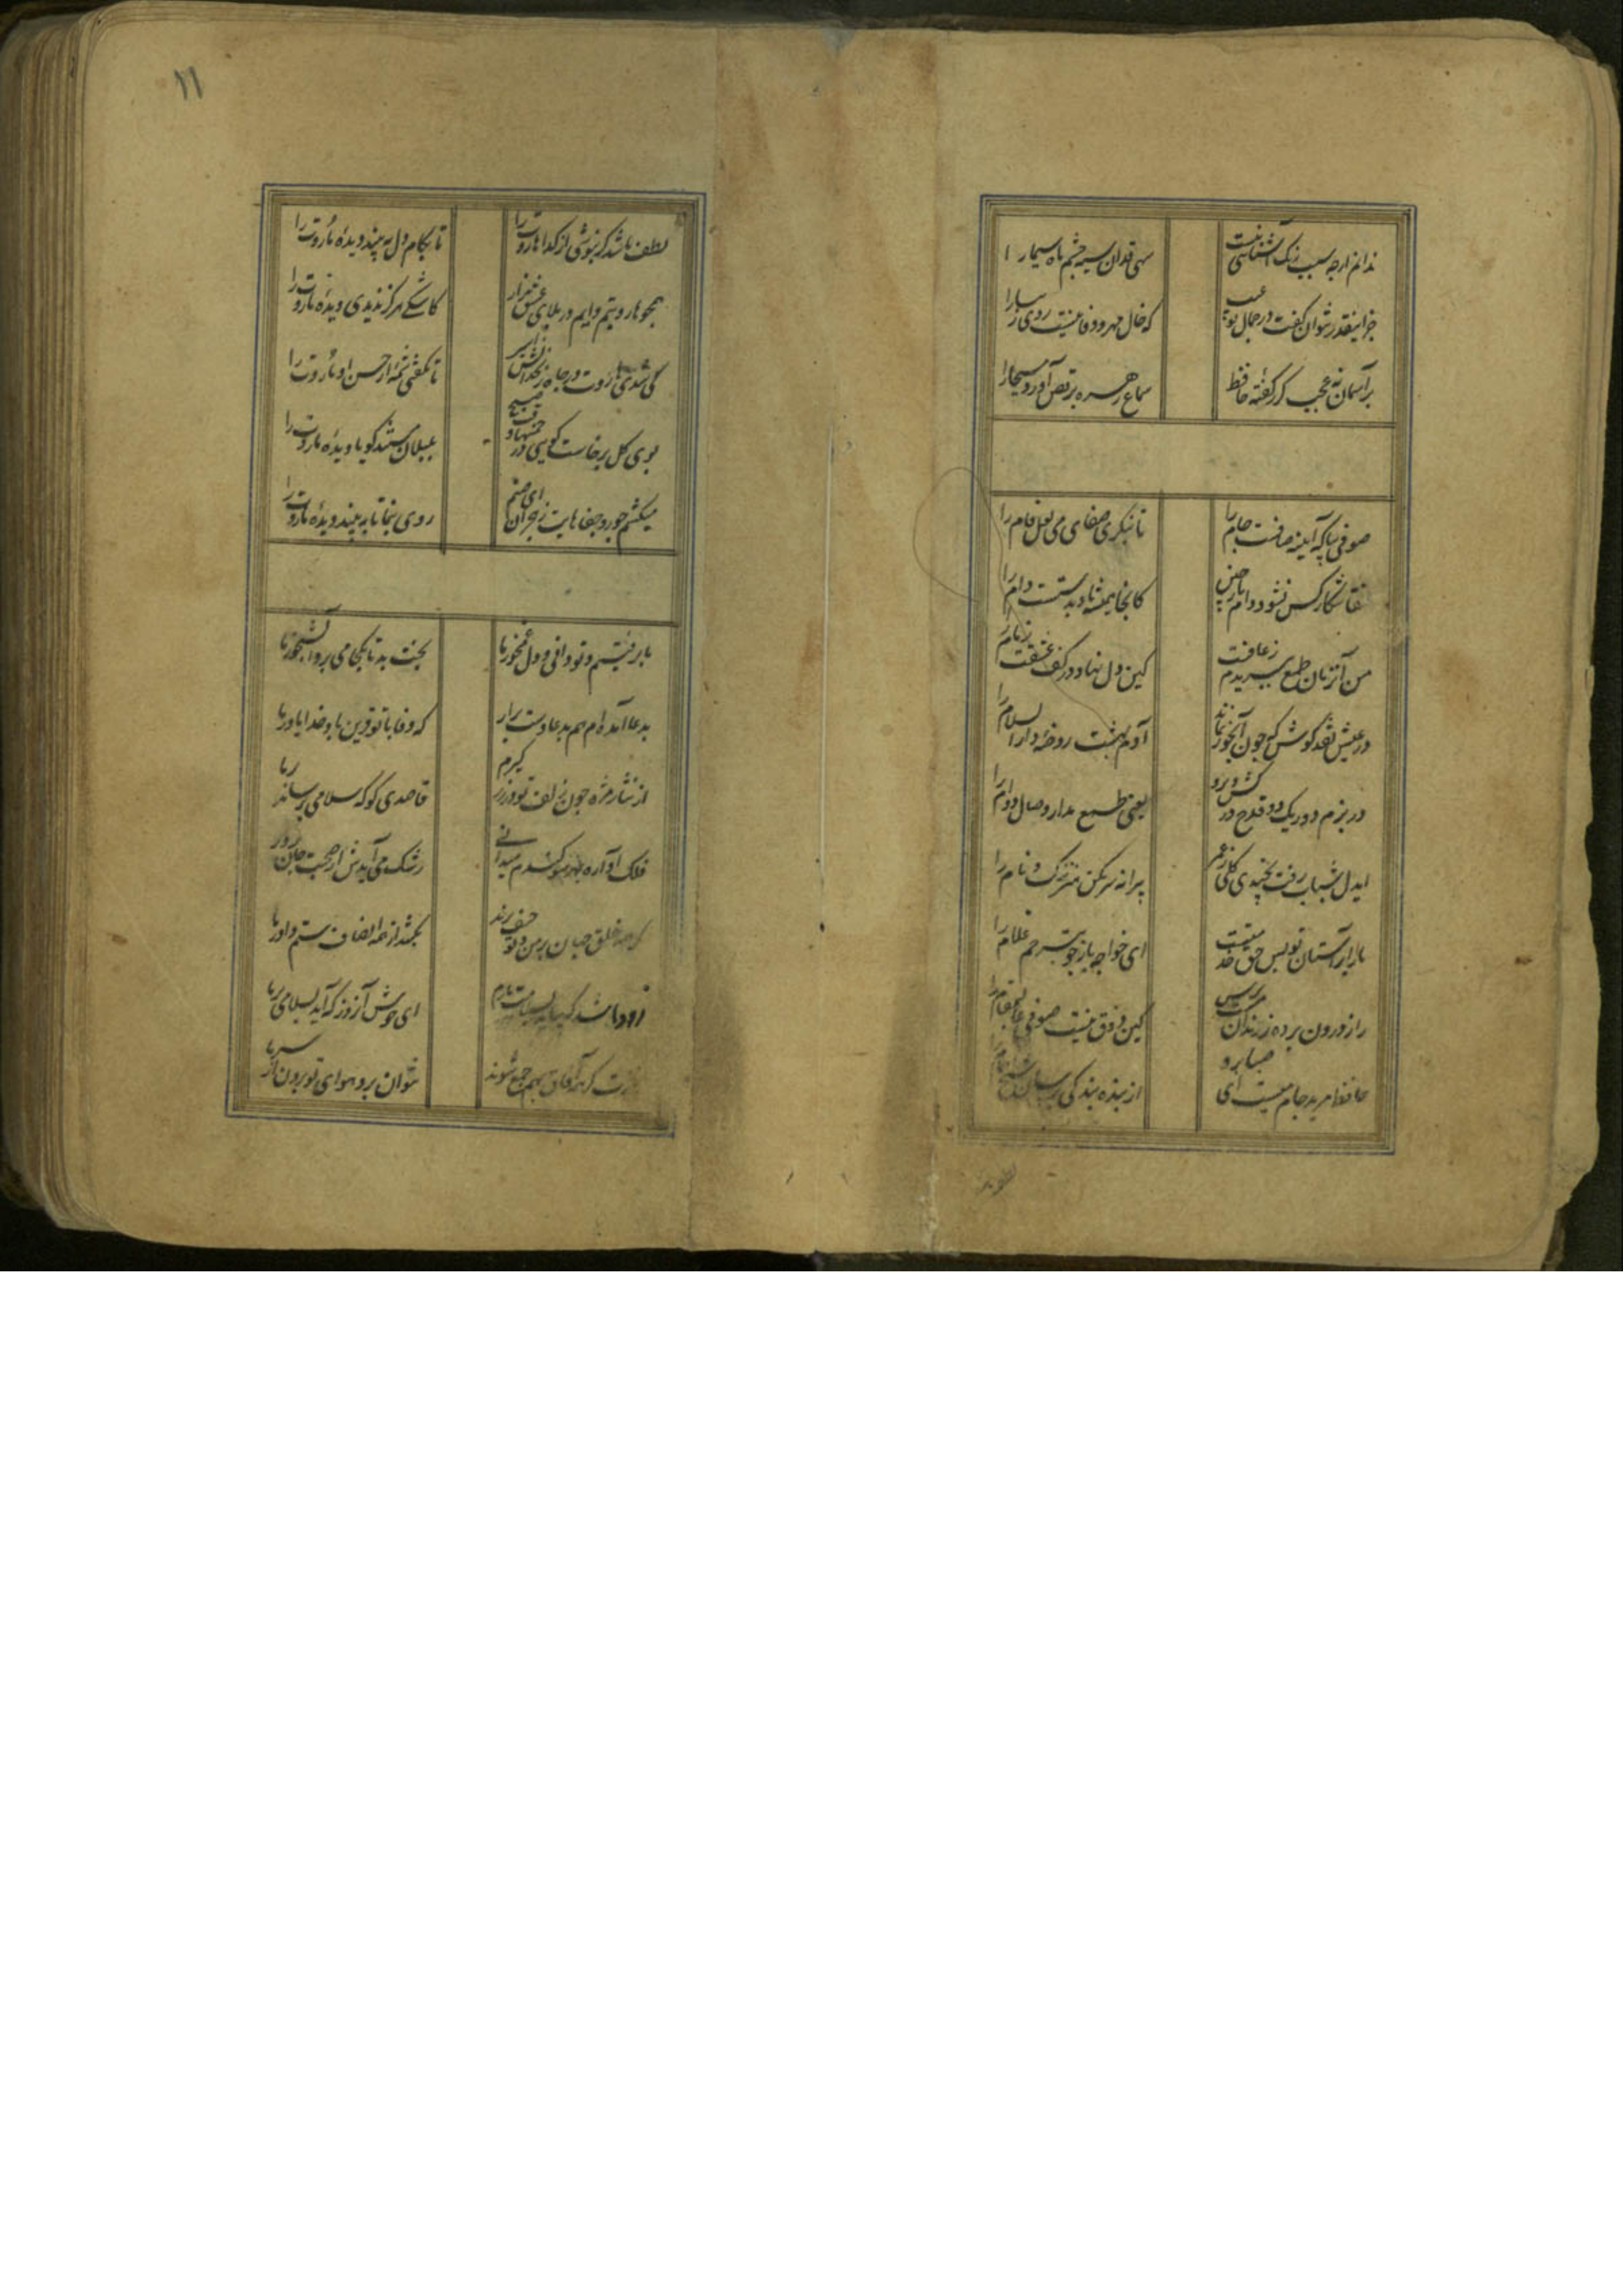 ندانم از چه سبب رنگ آشنائی نیست
سهی قدان سیه چشم ماه سیما را
جز اینقدر نتوان گفت در جمال تو عیب
که خال مهر و وفا نیست روی زیبا را
بر آسمان نه عجب گر ز گفته حافظ
سماع زهره برقص آورد مسیحا را
صوفی بیا که آینه صافیست جام را
تا بنگری صفای می لعل فام را
عنقا شکار کس نشود دام باز چین
کانجا همیشه باد بدستست دام را
من آنزمان طمع ببریدم ز عافیت
کین دل نهاد در کف عشقت زمام را
در عیش نقد کوش که چون آبخور نماند
آدم بهشت روضه دار السلام را
در بزم دور یک دو قدح در کش و برو
یعنی طمع مدار وصال دوام را
ایدل شباب رفت نچیدی گلی ز عمر
پیرانه سر مکن هنر ننگ و نام را
ما را بر آستان تو بس حق خدمتست
ای خواجه باز جو بترحم غلام را
راز درون پرده ز رندان مست پرس
کین ذوق نیست صوفی عالیمقام را
حافظ مرید جام میست ای صبا برو
از بنده بندگی برسان شیخ جام را
لطف باشد
۱۱
لطف باشد گر نپوشی از گداها روت را
تا بکام دل به بیند دیده ما روت را
همچو هاروتیم دایم در بلای عشق زار
کاشکی هرگز ندیدی دیده ما روت را
کی شدی هاروت در چاه زنخدانش اسیر
تا نگفتی شمه از حسن او ماروت را
بوی گل برخاست گویی در چمنها
بلبلان مستند گویا دیده ما روت را
میکشم جور و جفاهایت ز هجران ای صنم
روی بنما تا به بیند دیده ما روت را
ما برفتیم و تو دانی و دل غمخور ما
بخت بد تا بکجا می برد آبشخور ما
بدعا آمده ام هم بدعا دست برآر
که وفا با تو قرین باد و خدا یاور ما
از نثار مژه چون زلف تو در زر گیرم
قاصدی کو که سلامی برساند بر ما
فلک آواره بهر سو کندم میدانی
رشک می آیدش از صحبت جان پرور ما
گر همه خلق جهان بر من و تو حیف برند
بکشد از همه انصاف ستم داور ما
زود باشد که بیاید بسلامت یارم
ای خوش آنروز که آید بسلامی بر ما
بسرت گر همه آفاق بهم جمع شوند
نتوان برد هوای تو برون از سر ما